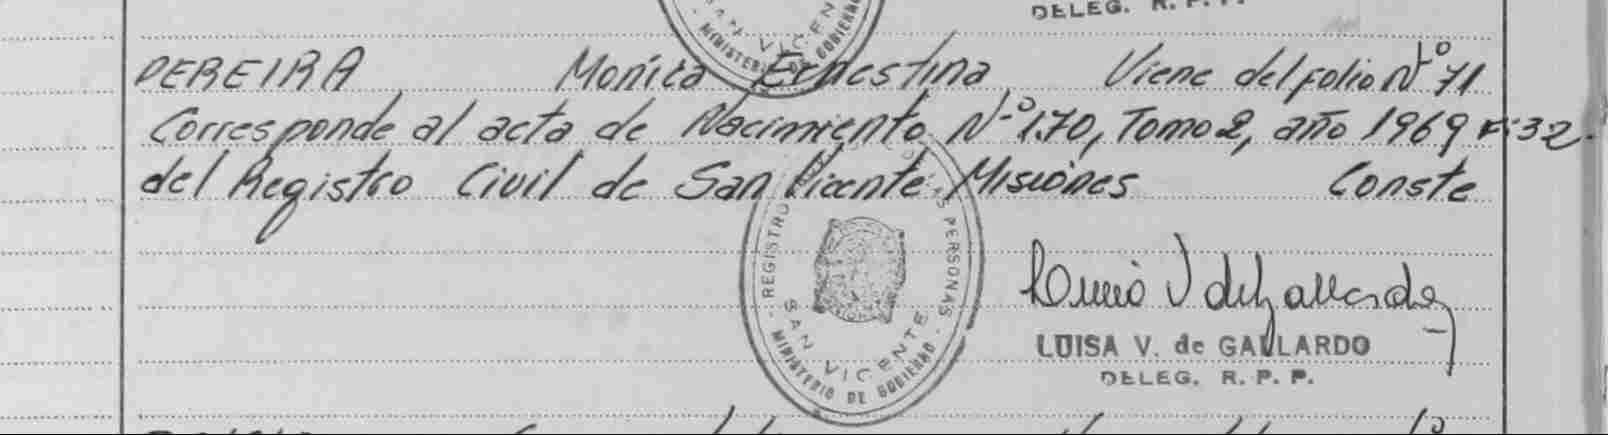 DELEG. R. P. P.
SAN VICENTE
MINISTERIO DE GOBIERNO
PEREIRA Monica Ernestina Viene del folio Nº 71
Corresponde al acta de Nacimiento Nº 170, Tomo 2, año 1969 F: 32.
del Registro Civil de San Vicente Misiones Conste
REGISTRO PERSONAS
SAN VICENTE
MINISTERIO DE GOBIERNO
Luisa V de Gallardo
LUISA V. de GALLARDO
DELEG. R. P. P.